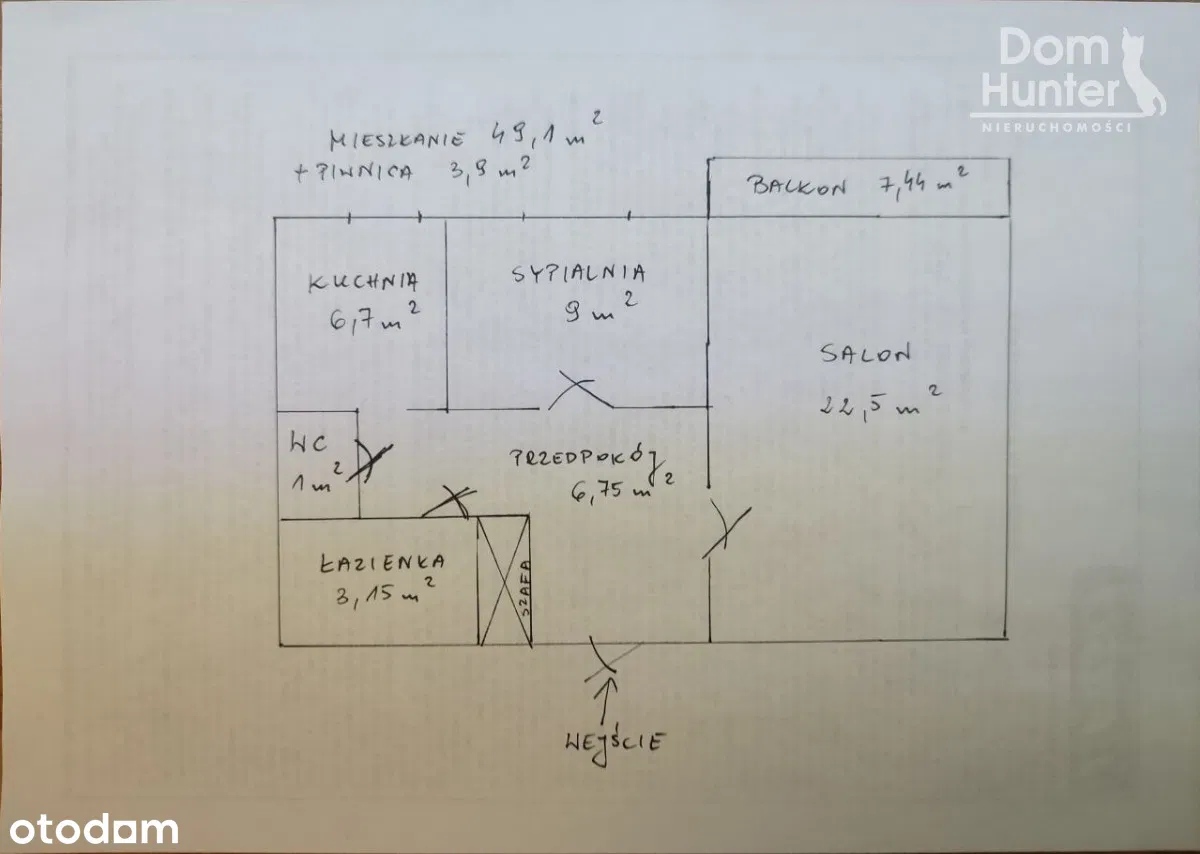 Dom
Hunter
NIERUCHOMOŚCI
MIESZKANIE 49,1 m²
+ PIWNICA 3,9 m²
BALKON 7,44 m²
KUCHNIA
6,7 m²
SYPIALNIA
9 m²
SALON
22,5 m²
WC
1 m²
PRZEDPOKÓJ
6,75 m²
ŁAZIENKA
3,15 m²
SZAFA
WEJŚCIE
otodom